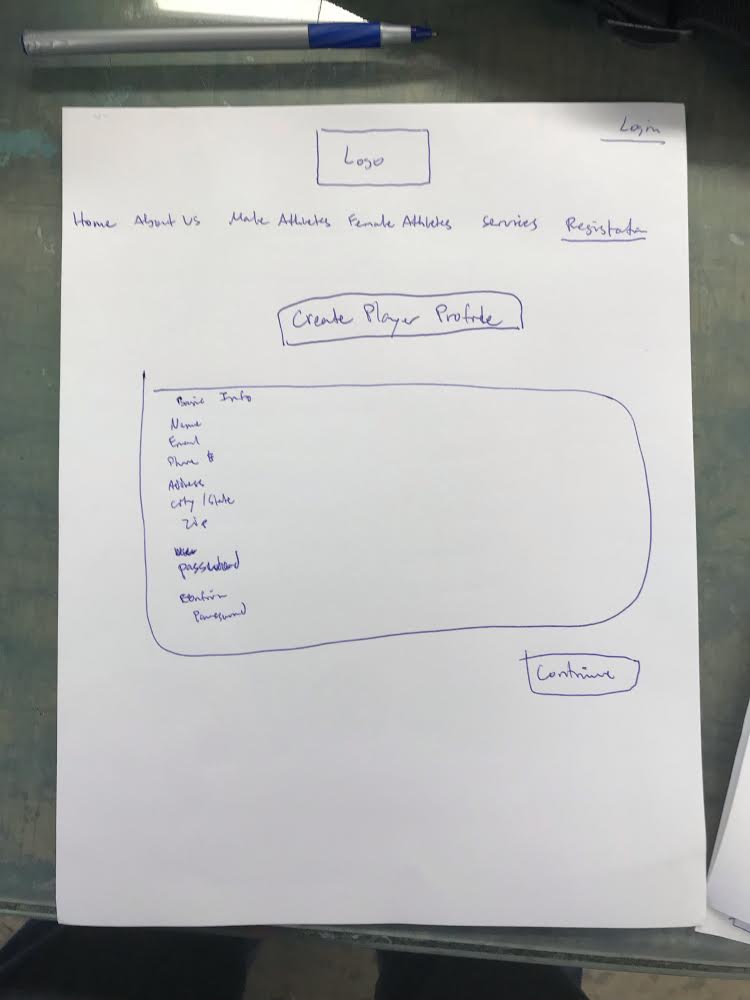 Login
Logo
Home About Us Male Athletes Female Athletes Services Registration
Create Player Profile
Basic Info
Name
Email
Phone #
Address
City / State
Zip
password
Confirm
Password
Continue